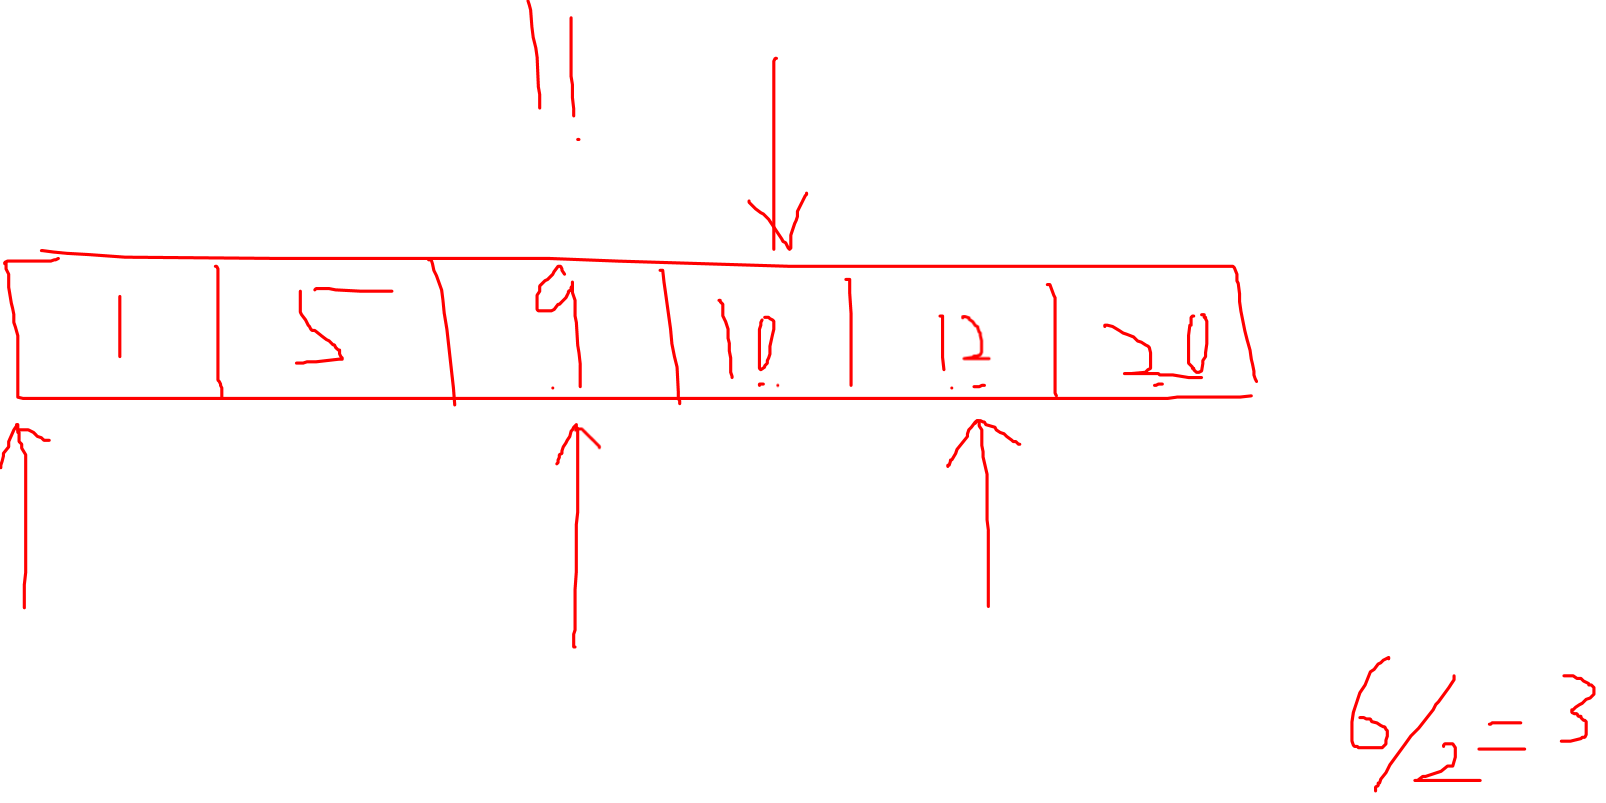 11
1 5 9 10 12 20
6/2=3